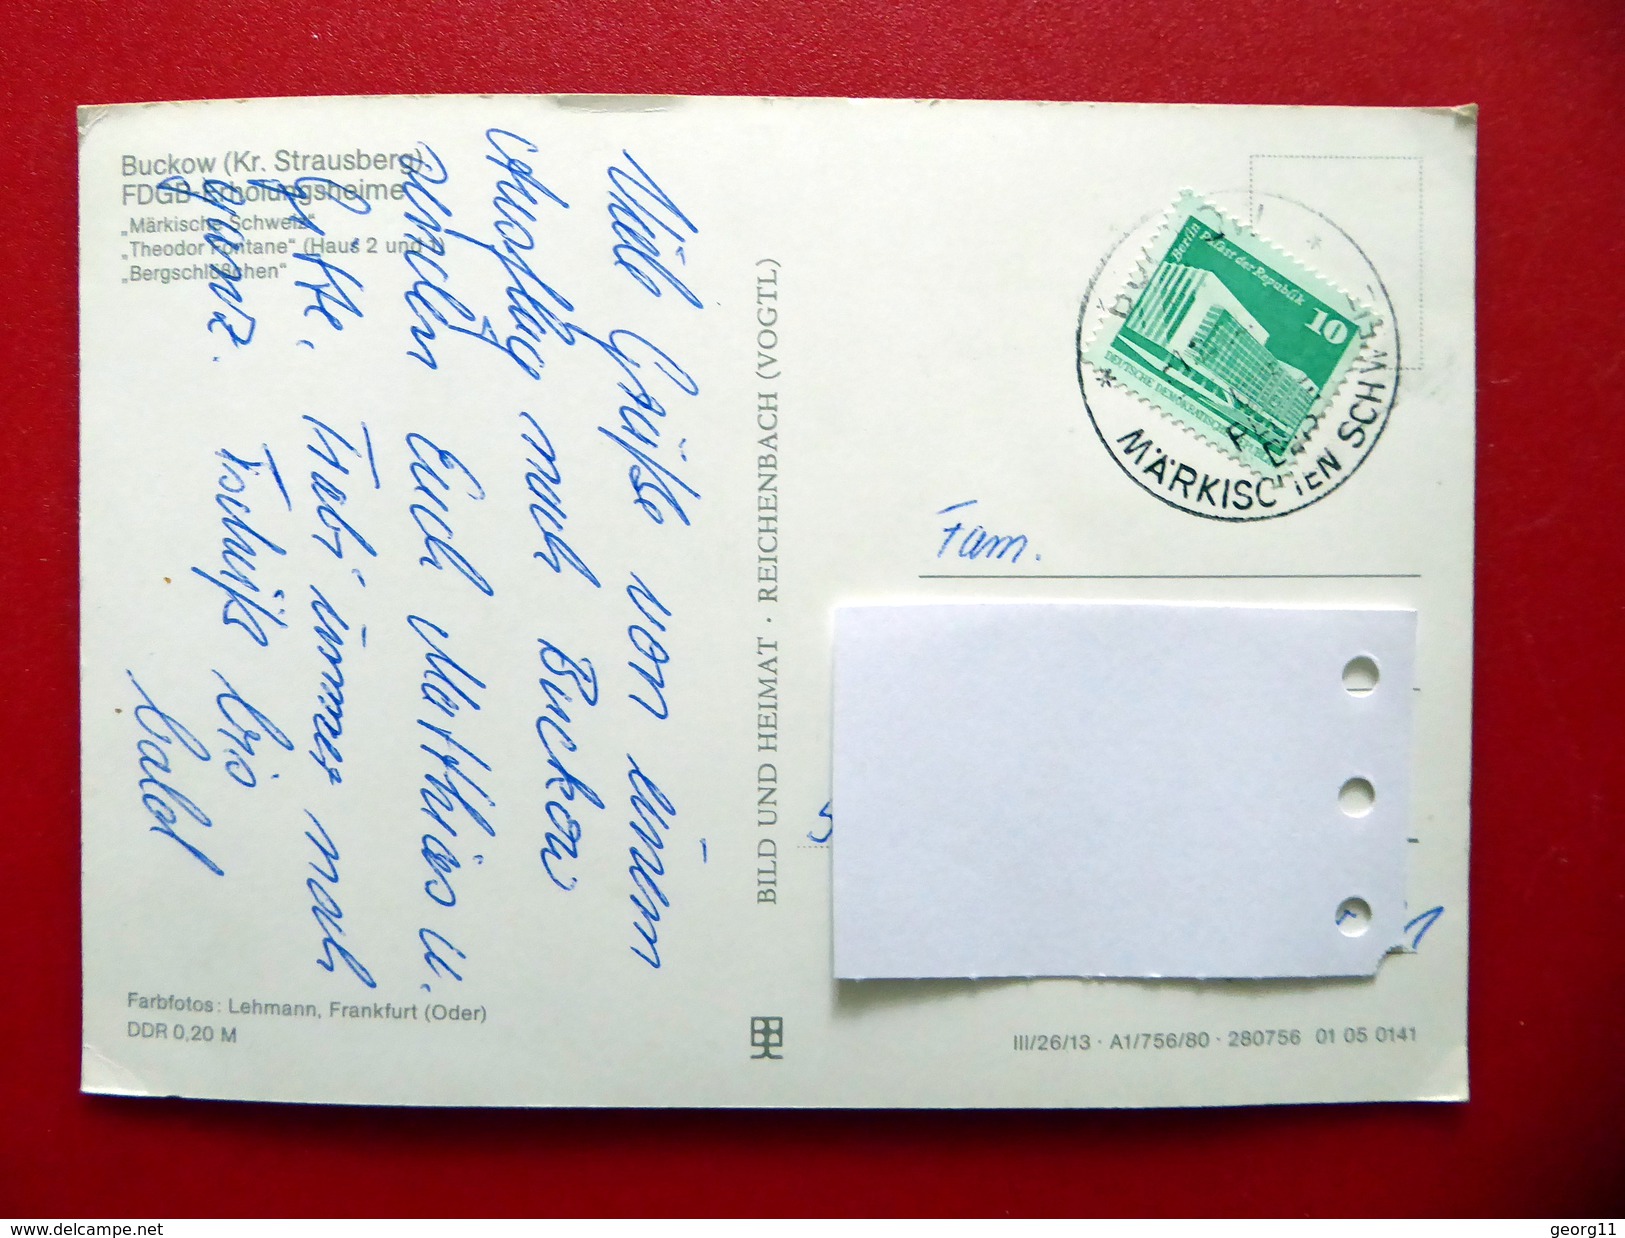 Buckow (Kr. Strausberg)
FDGB-Erholungsheime
„Märkische Schweiz“
„Theodor Fontane“ (Haus 2 und 1)
„Bergschlößchen“
Viele Grüße von einem
Ausflug nach Buckow
senden Euch Matthias u.
Gitte, Habt immer noch
ganz.
Tschüß bis
bald
Farbfotos: Lehmann, Frankfurt (Oder)
DDR 0,20 M
BILD UND HEIMAT · REICHENBACH (VOGTL)
Berlin Palast der Republik
10
DEUTSCHE DEMOKRATISCHE REPUBLIK
MÄRKISCHEN SCHWEIZ
PERLE DER
Fam.
III/26/13 · A1/756/80 · 280756 01 05 0141
www.delcampe.net
georg11